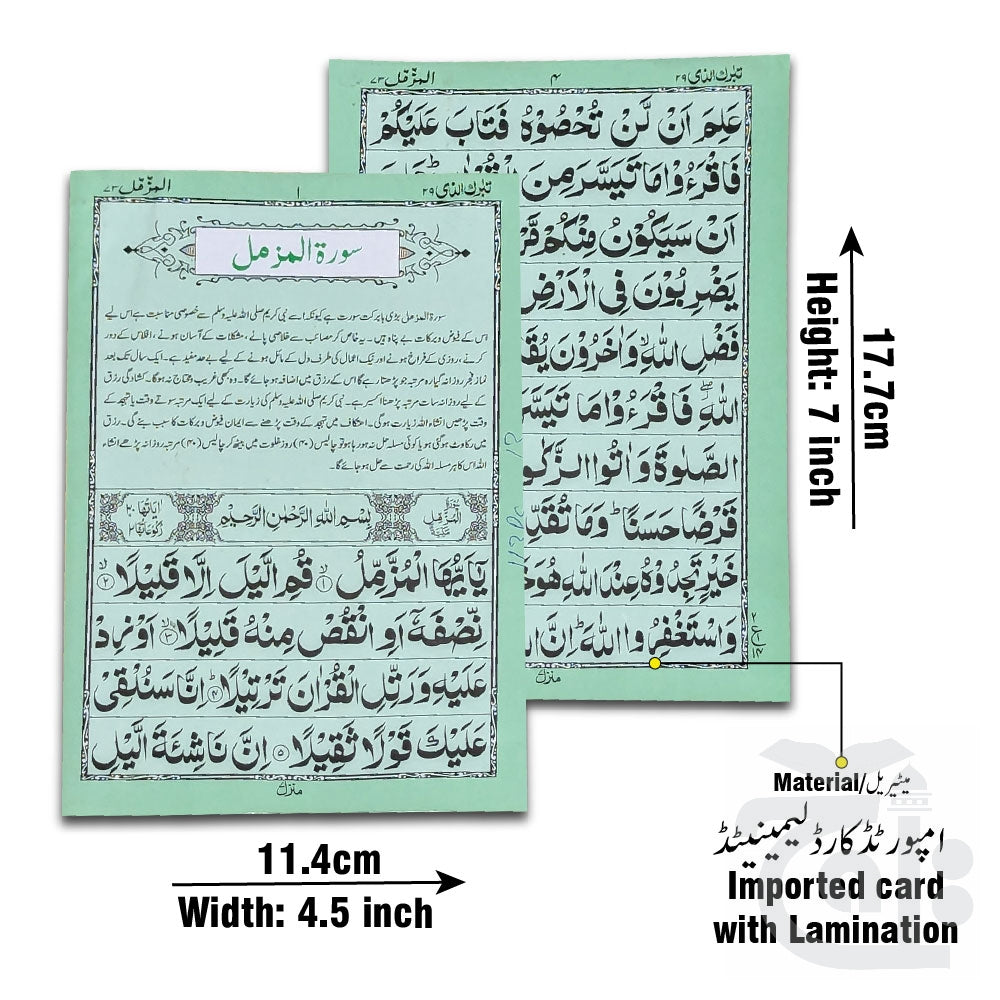 تبرک الذی ۲۹
۴
المزمّل ۷۳
عَلِمَ اَنْ لَّنْ تُحْصُوْهُ فَتَابَ عَلَيْكُمْ
فَاقْرَءُوْا مَا تَيَسَّرَ مِنَ
اَنْ سَيَكُوْنُ مِنْكُمْ
يَضْرِبُوْنَ فِي الْاَرْضِ
فَضْلِ اللّٰهِ ۙ وَاٰخَرُوْنَ
اللّٰهِ ۖ فَاقْرَءُوْا مَا تَيَسَّرَ
الصَّلٰوةَ وَاٰتُوا الزَّكٰو
قَرْضًا حَسَنًا ؕ وَمَا تُقَدِّ
خَيْرٍ تَجِدُوْهُ عِنْدَ اللّٰهِ هُوَ
وَاسْتَغْفِرُوا اللّٰهَ ؕ اِنَّ
منزل
تبرک الذی ۲۹
۱
المزمّل ۷۳
سورة المزمل
سورة المزمل بڑی بابرکت سورت ہے کیونکہ اسے نبی کریم صلی اللہ علیہ وسلم سے خصوصی مناسبت ہے اس لیے
اس کے فیوض و برکات بے پناہ ہیں۔ یہ خاص کر مصائب سے خلاصی پانے، مشکلات کے آسان ہونے، افلاس کے دور
کرنے، روزی کے فراخ ہونے اور نیک اعمال کی طرف دل کے مائل ہونے کے لیے بے حد مفید ہے۔ ایک سال تک بعد
نماز فجر روزانہ گیارہ مرتبہ جو پڑھتا رہے گا اس کے رزق میں اضافہ ہو جائے گا۔ وہ کبھی غریب و محتاج نہ ہوگا۔ کشادگی رزق
کے لیے روزانہ سات مرتبہ پڑھنا اکسیر ہے۔ نبی کریم صلی اللہ علیہ وسلم کی زیارت کے لیے ایک مرتبہ سوتے وقت یا تہجد کے
وقت پڑھیں انشاء اللہ زیارت ہوگی۔ اعتکاف میں تہجد کے وقت پڑھنے سے ایمان فیوض و برکات کا سبب بنے گی۔ رزق
میں رکاوٹ ہو گئی ہو یا کوئی مسئلہ حل نہ ہو رہا ہو تو چالیس (۴۰) روز خلوت میں بیٹھ کر چالیس (۴۰) مرتبہ روزانہ پڑھے انشاء
اللہ اس کا ہر مسئلہ اللہ کی رحمت سے حل ہو جائے گا۔
بِسْمِ اللّٰهِ الرَّحْمٰنِ الرَّحِيْمِ
يٰۤاَيُّهَا الْمُزَّمِّلُ ۙ﴿۱﴾ قُمِ الَّيْلَ اِلَّا قَلِيْلًا ۙ﴿۲﴾
نِّصْفَهٗۤ اَوِ انْقُصْ مِنْهُ قَلِيْلًا ۙ﴿۳﴾ اَوْ زِدْ
عَلَيْهِ وَرَتِّلِ الْقُرْاٰنَ تَرْتِيْلًا ؕ﴿۴﴾ اِنَّا سَنُلْقِيْ
عَلَيْكَ قَوْلًا ثَقِيْلًا ﴿۵﴾ اِنَّ نَاشِئَةَ الَّيْلِ
منزل
17.7cm
Height: 7 inch
11.4cm
Width: 4.5 inch
Material/میٹیریل
امپورٹڈ کارڈ لیمینیٹڈ
Imported card
with Lamination